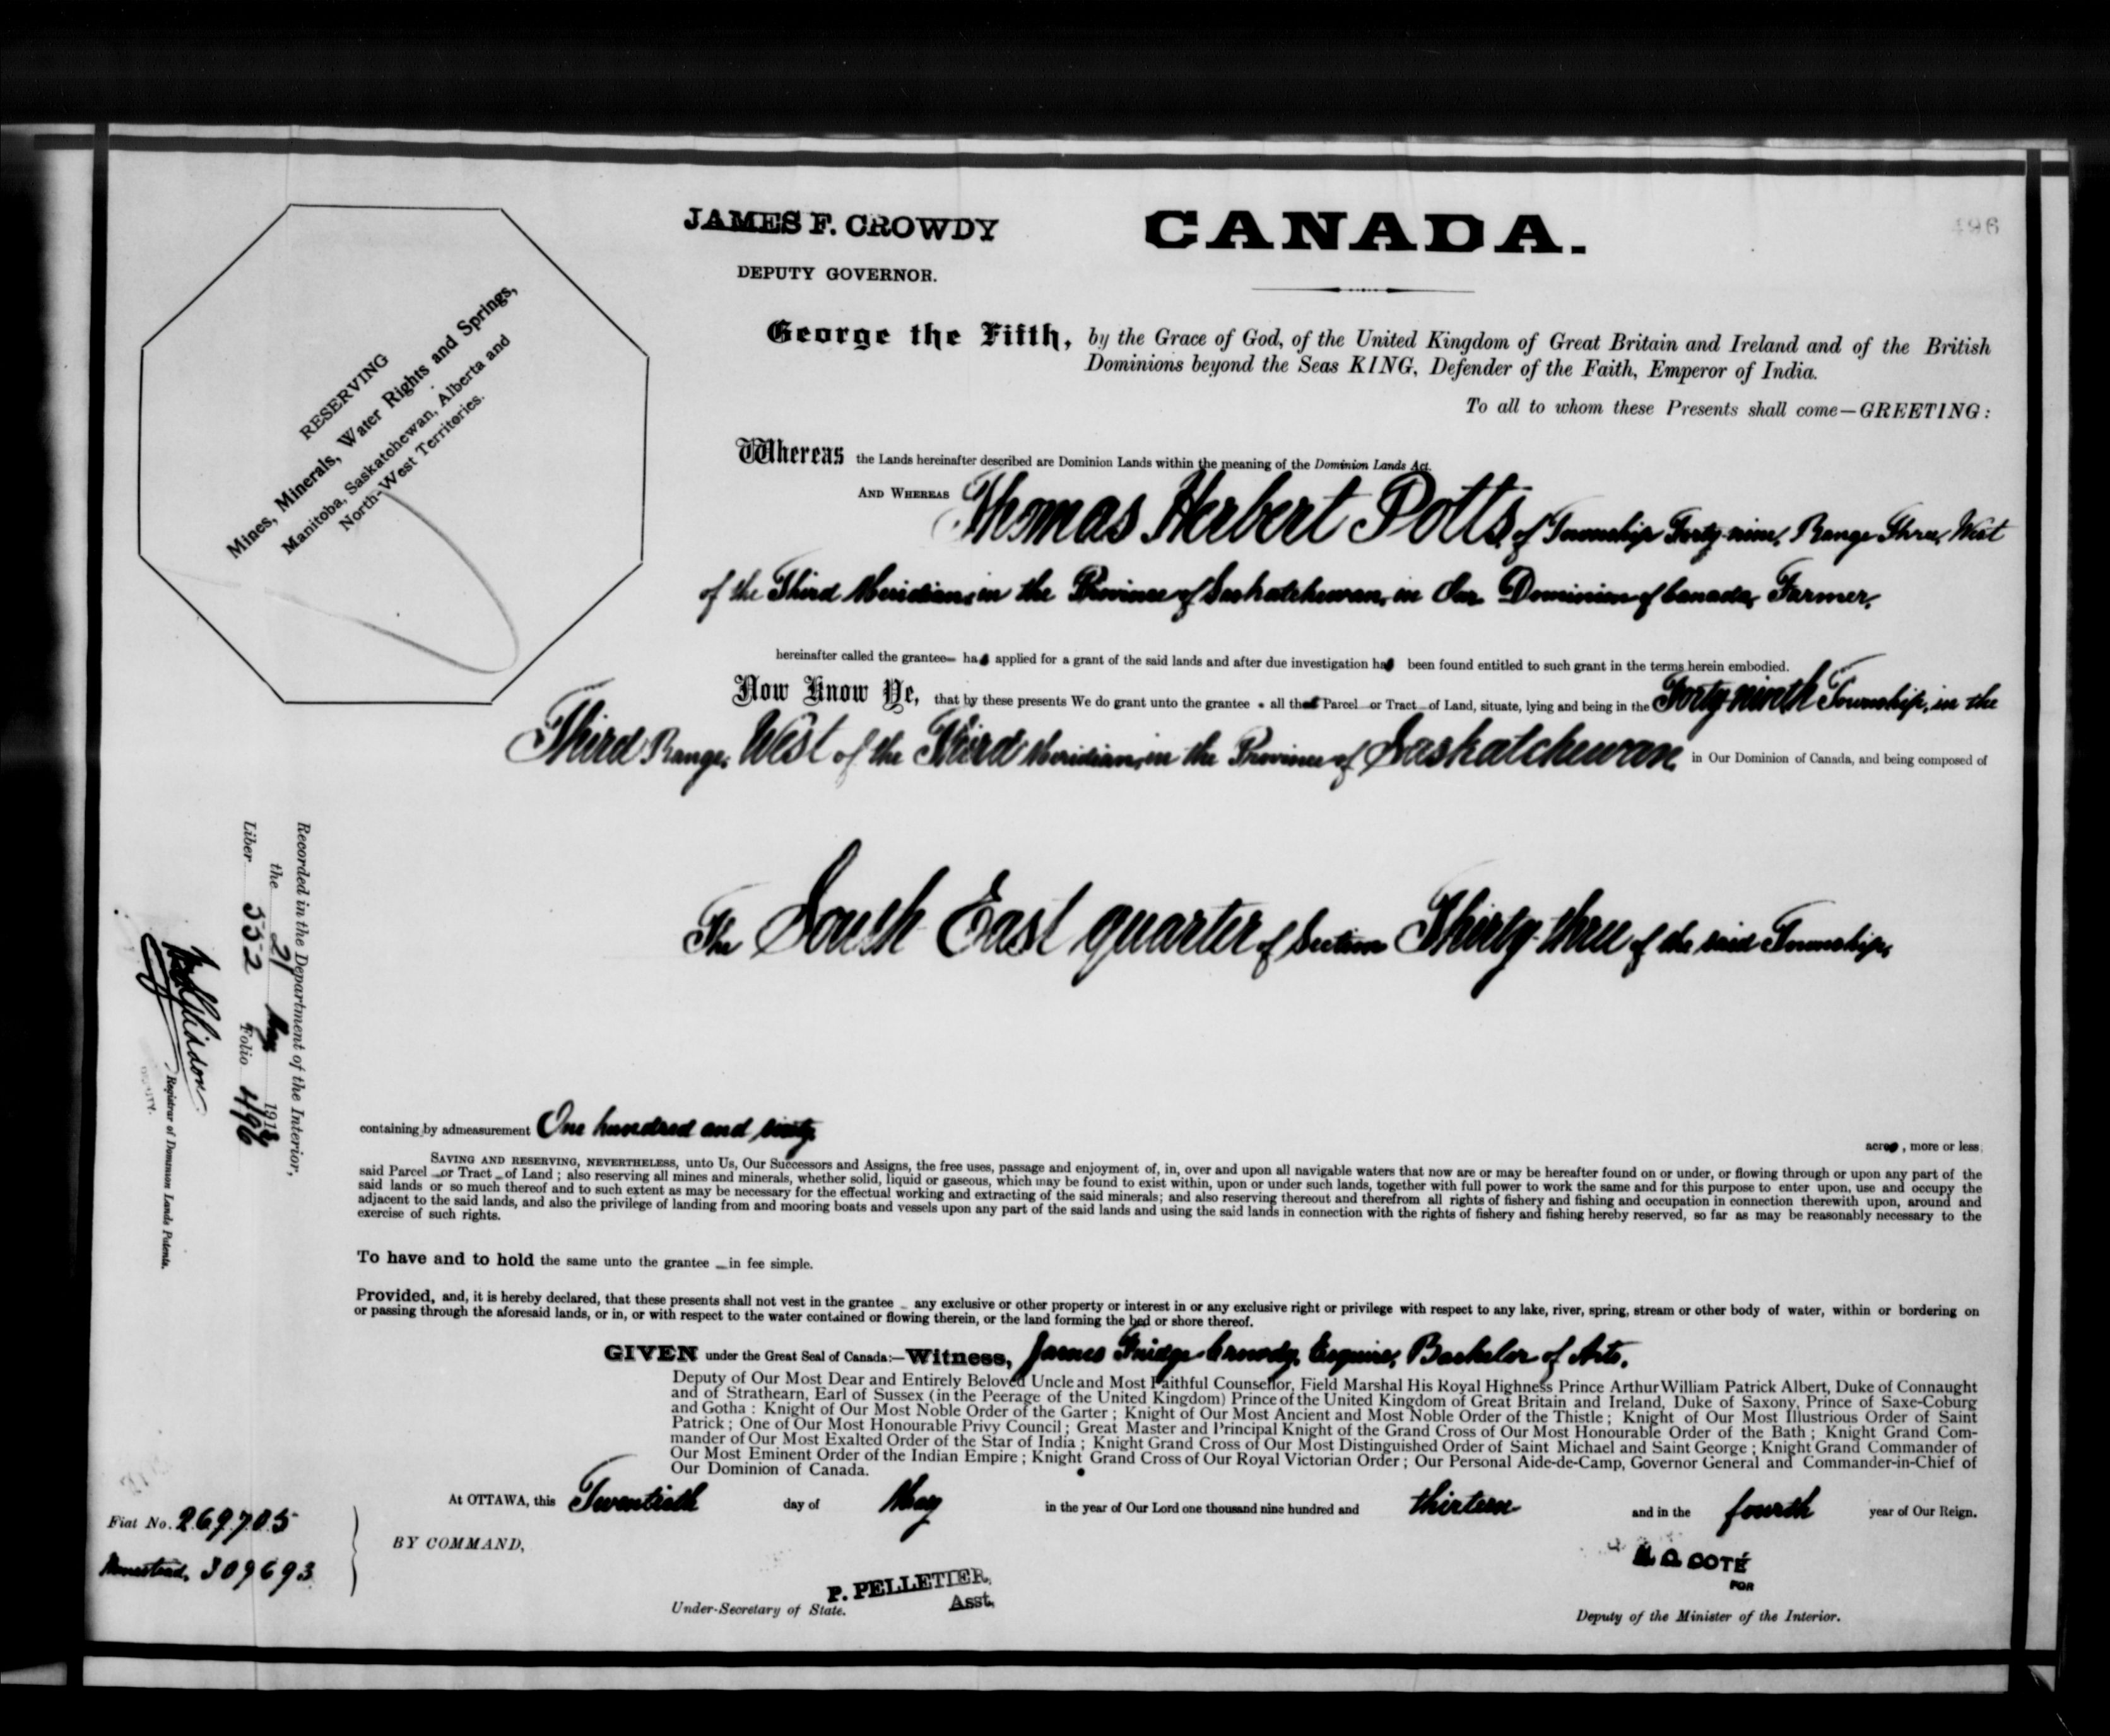 JAMES F. CROWDY
DEPUTY GOVERNOR.
CANADA.
496
RESERVING
Mines, Minerals, Water Rights and Springs,
Manitoba, Saskatchewan, Alberta and
North-West Territories.
George the Fifth, by the Grace of God, of the United Kingdom of Great Britain and Ireland and of the British
Dominions beyond the Seas KING, Defender of the Faith, Emperor of India.
To all to whom these Presents shall come—GREETING:
Whereas the Lands hereinafter described are Dominion Lands within the meaning of the Dominion Lands Act.
AND WHEREAS Thomas Herbert Potts, of Township Forty-nine, Range Three, West
of the Third Meridian, in the Province of Saskatchewan, in Our Dominion of Canada, Farmer,
hereinafter called the grantee has applied for a grant of the said lands and after due investigation has been found entitled to such grant in the terms herein embodied.
Now Know Ye, that by these presents We do grant unto the grantee all that Parcel or Tract of Land, situate, lying and being in the Forty-ninth Township, in the
Third Range, West of the Third Meridian, in the Province of Saskatchewan, in Our Dominion of Canada, and being composed of
The South East quarter of Section Thirty-three of the said Township,
containing by admeasurement One hundred and sixty acres, more or less;
SAVING AND RESERVING, NEVERTHELESS, unto Us, Our Successors and Assigns, the free uses, passage and enjoyment of, in, over and upon all navigable waters that now are or may be hereafter found on or under, or flowing through or upon any part of the
said Parcel or Tract of Land; also reserving all mines and minerals, whether solid, liquid or gaseous, which may be found to exist within, upon or under such lands, together with full power to work the same and for this purpose to enter upon, use and occupy the
said lands or so much thereof and to such extent as may be necessary for the effectual working and extracting of the said minerals; and also reserving thereout and therefrom all rights of fishery and fishing and occupation in connection therewith upon, around and
adjacent to the said lands, and also the privilege of landing from and mooring boats and vessels upon any part of the said lands and using the said lands in connection with the rights of fishery and fishing hereby reserved, so far as may be reasonably necessary to the
exercise of such rights.
To have and to hold the same unto the grantee in fee simple.
Provided, and, it is hereby declared, that these presents shall not vest in the grantee any exclusive or other property or interest in or any exclusive right or privilege with respect to any lake, river, spring, stream or other body of water, within or bordering on
or passing through the aforesaid lands, or in, or with respect to the water contained or flowing therein, or the land forming the bed or shore thereof.
GIVEN under the Great Seal of Canada:—Witness, James Fridge Crowdy, Esquire, Bachelor of Arts,
Deputy of Our Most Dear and Entirely Beloved Uncle and Most Faithful Counsellor, Field Marshal His Royal Highness Prince Arthur William Patrick Albert, Duke of Connaught
and of Strathearn, Earl of Sussex (in the Peerage of the United Kingdom) Prince of the United Kingdom of Great Britain and Ireland, Duke of Saxony, Prince of Saxe-Coburg
and Gotha: Knight of Our Most Noble Order of the Garter; Knight of Our Most Ancient and Most Noble Order of the Thistle; Knight of Our Most Illustrious Order of Saint
Patrick; One of Our Most Honourable Privy Council; Great Master and Principal Knight of the Grand Cross of Our Most Honourable Order of the Bath; Knight Grand Com-
mander of Our Most Exalted Order of the Star of India; Knight Grand Cross of Our Most Distinguished Order of Saint Michael and Saint George; Knight Grand Commander of
Our Most Eminent Order of the Indian Empire; Knight Grand Cross of Our Royal Victorian Order; Our Personal Aide-de-Camp, Governor General and Commander-in-Chief of
Our Dominion of Canada.
At OTTAWA, this Twentieth day of May in the year of Our Lord one thousand nine hundred and thirteen and in the fourth year of Our Reign.
BY COMMAND,
P. PELLETIER
Under-Secretary of State. Asst.
COTÉ
FOR
Deputy of the Minister of the Interior.
Fiat No. 269705
Homestead, 309693
Recorded in the Department of the Interior,
the 21 May 1913
Liber 552 Folio 496
Registrar of Dominion Lands Patents.
DEPUTY.